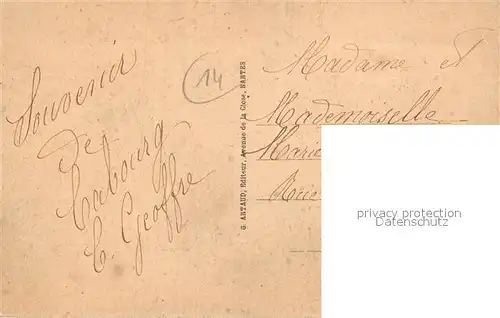 Souvenir
de
Cabourg
C. Geoffre
14
G. ARTAUD, Editeur, Avenue de la Close, NANTES
Madame et
Mademoiselle
Marie
privacy protection
Datenschutz